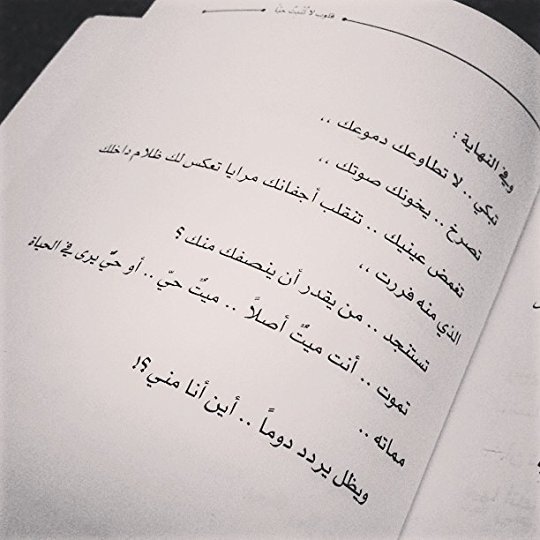 قلوب لا تنبت حبًا
وفي النهاية :
تبكي .. لا تطاوعك دموعك ،،
تصرخ .. يخونك صوتك ،،
تغمض عينيك .. تنقلب أجفانك مرايا تعكس لك ظلام داخلك
الذي منه فررت ،،
تستنجد .. من يقدر أن ينصفك منك ؟
تموت .. أنت ميتٌ أصلاً .. ميتٌ حيّ .. أو حيٌّ يرى في الحياة
مماته ..
ويظل يردد دوماً .. أين أنا مني؟!